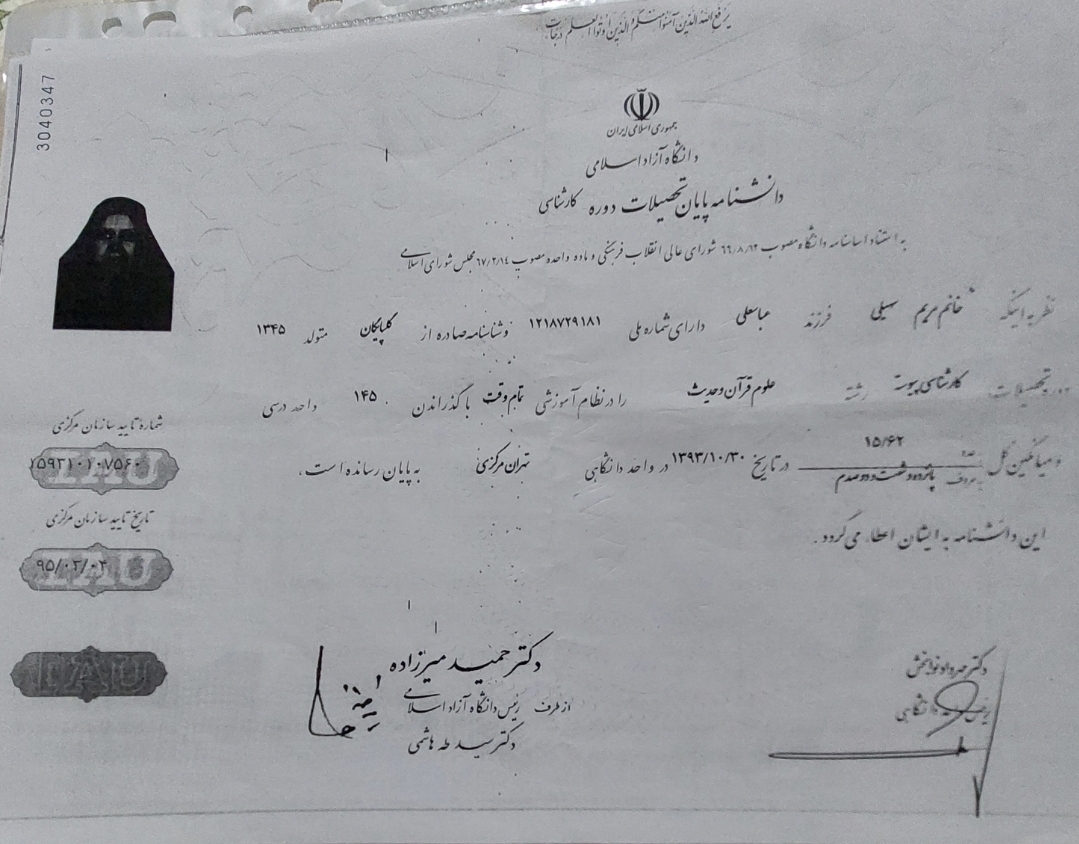 یرفع الله الذین آمنوا منکم والذین اوتوا العلم درجات
3040347
جمهوری اسلامی ایران
دانشگاه آزاد اسلامی
دانشنامه پایان تحصیلات دوره کارشناسی
به استناد اساسنامه دانشگاه مصوب ۶۶/۸/۱۲ شورای عالی انقلاب فرهنگی و ماده واحده مصوب ۶۷/۲/۱۴ مجلس شورای اسلامی
نظر به اینکه خانم مریم سهیلی فرزند عباسعلی دارای شماره ملی ۱۲۱۸۷۲۹۱۸۱ و شناسنامه صادره از گلپایگان متولد ۱۳۴۵
دوره تحصیلات کارشناسی پیوسته رشته علوم قرآن و حدیث را در نظام آموزشی تمام وقت با گذراندن ۱۴۵ واحد درسی
و میانگین کل به عدد ۱۵/۶۲ به حروف پانزده و شصت و دو صدم در تاریخ ۱۳۹۳/۱۰/۳۰ در واحد دانشگاهی تهران مرکزی به پایان رسانده است،
این دانشنامه به ایشان اعطاء می‌گردد.
شماره تایید سازمان مرکزی
۱۵۹۳۱۰۱۰۷۵۶۰
IAU
تاریخ تایید سازمان مرکزی
۹۵/۰۳/۰۳
IAU
IAU
دکتر حمید میرزاده
از طرف رئیس دانشگاه آزاد اسلامی
دکتر سید طه هاشمی
دکتر مهرداد نوابخش
رئیس واحد دانشگاهی